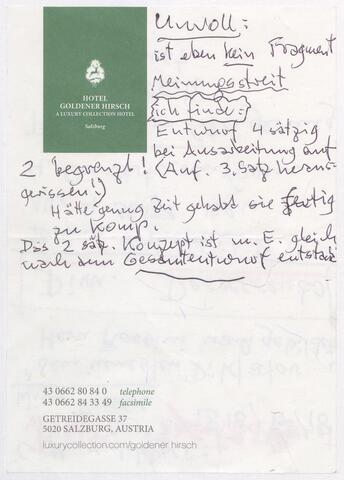 Unvoll:
ist eben kein Fragment
Meinungsstreit
ich finde:
Entwurf 4 sätzig
bei Ausarbeitung auf
2 begrenzt! (Auf. 3. Satz heraus-
gerissen!)
Hätte genug Zeit gehabt sie fertig
zu komp.
Das 2 sätz. Konzept ist m. E. gleich
nach dem Gesamtentwurf entstan
HOTEL
GOLDENER HIRSCH
A LUXURY COLLECTION HOTEL
Salzburg
43 0662 80 84 0 telephone
43 0662 84 33 49 facsimile
GETREIDEGASSE 37
5020 SALZBURG, AUSTRIA
luxurycollection.com/goldener hirsch